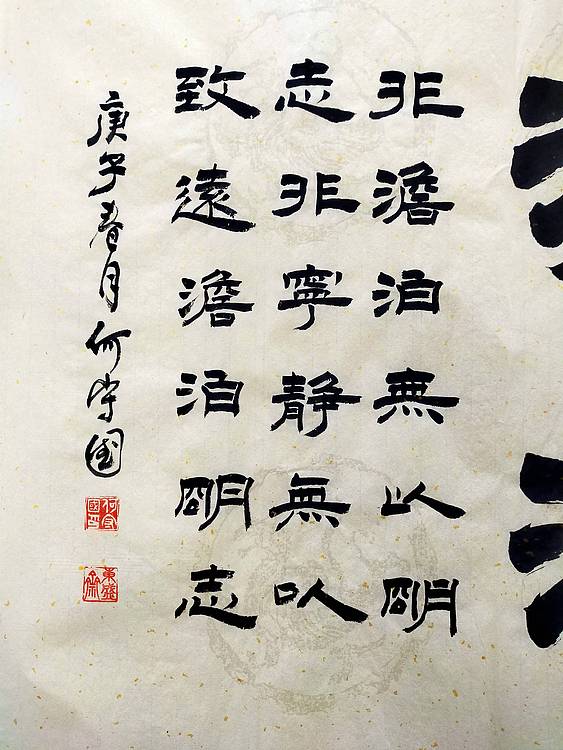 非澹泊無以明
志非寧靜無以
致遠澹泊明志
庚子春月何守國
何守國印